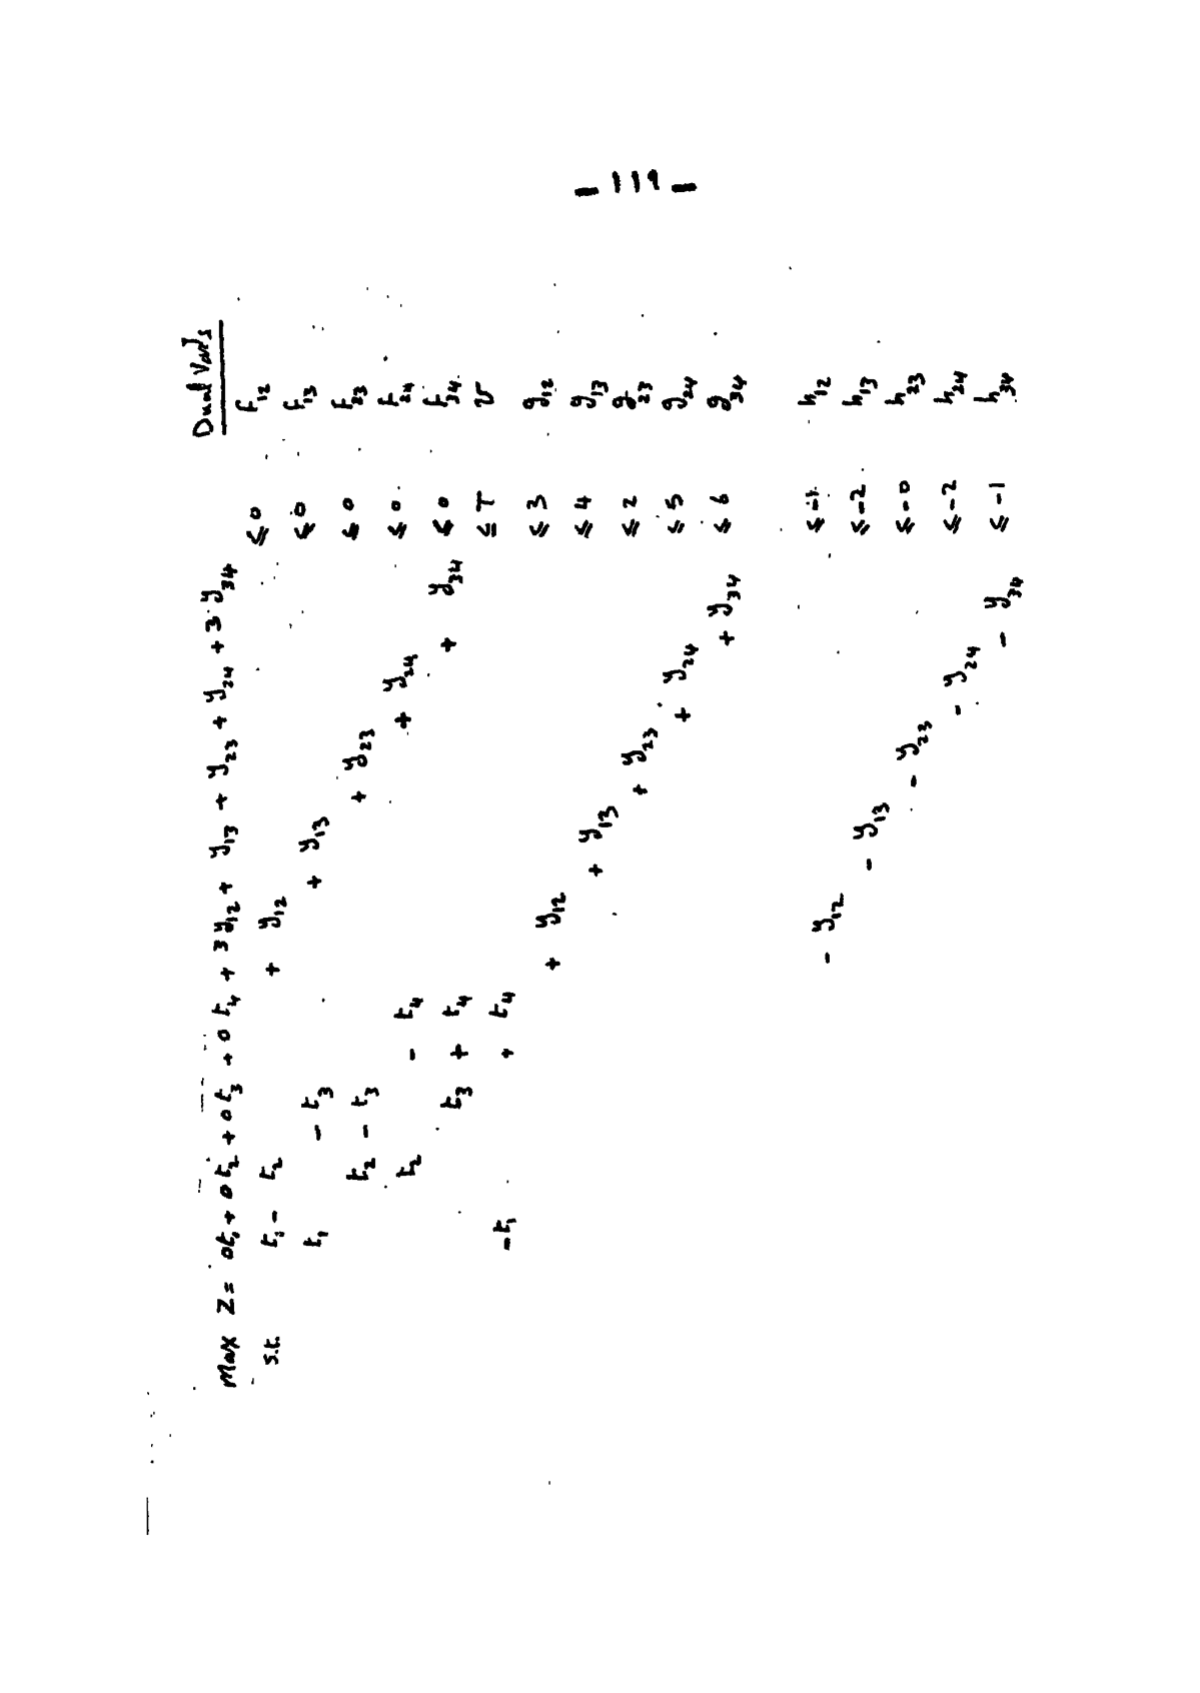 - 119 -
Dual Var's
Max Z = 0t₁ + 0t₂ + 0t₃ + 0t₄ + 3y₁₂ + y₁₃ + y₂₃ + y₂₄ + 3y₃₄
s.t. t₁ - t₂ + y₁₂ ≤ 0 f₁₂
t₁ - t₃ + y₁₃ ≤ 0 f₁₃
t₂ - t₃ + y₂₃ ≤ 0 f₂₃
t₂ - t₄ + y₂₄ ≤ 0 f₂₄
t₃ + t₄ + y₃₄ ≤ 0 f₃₄
-t₁ + t₄ ≤ T v
+ y₁₂ ≤ 3 g₁₂
+ y₁₃ ≤ 4 g₁₃
+ y₂₃ ≤ 2 g₂₃
+ y₂₄ ≤ 5 g₂₄
+ y₃₄ ≤ 6 g₃₄
- y₁₂ ≤ -1 h₁₂
- y₁₃ ≤ -2 h₁₃
- y₂₃ ≤ -0 h₂₃
- y₂₄ ≤ -2 h₂₄
- y₃₄ ≤ -1 h₃₄